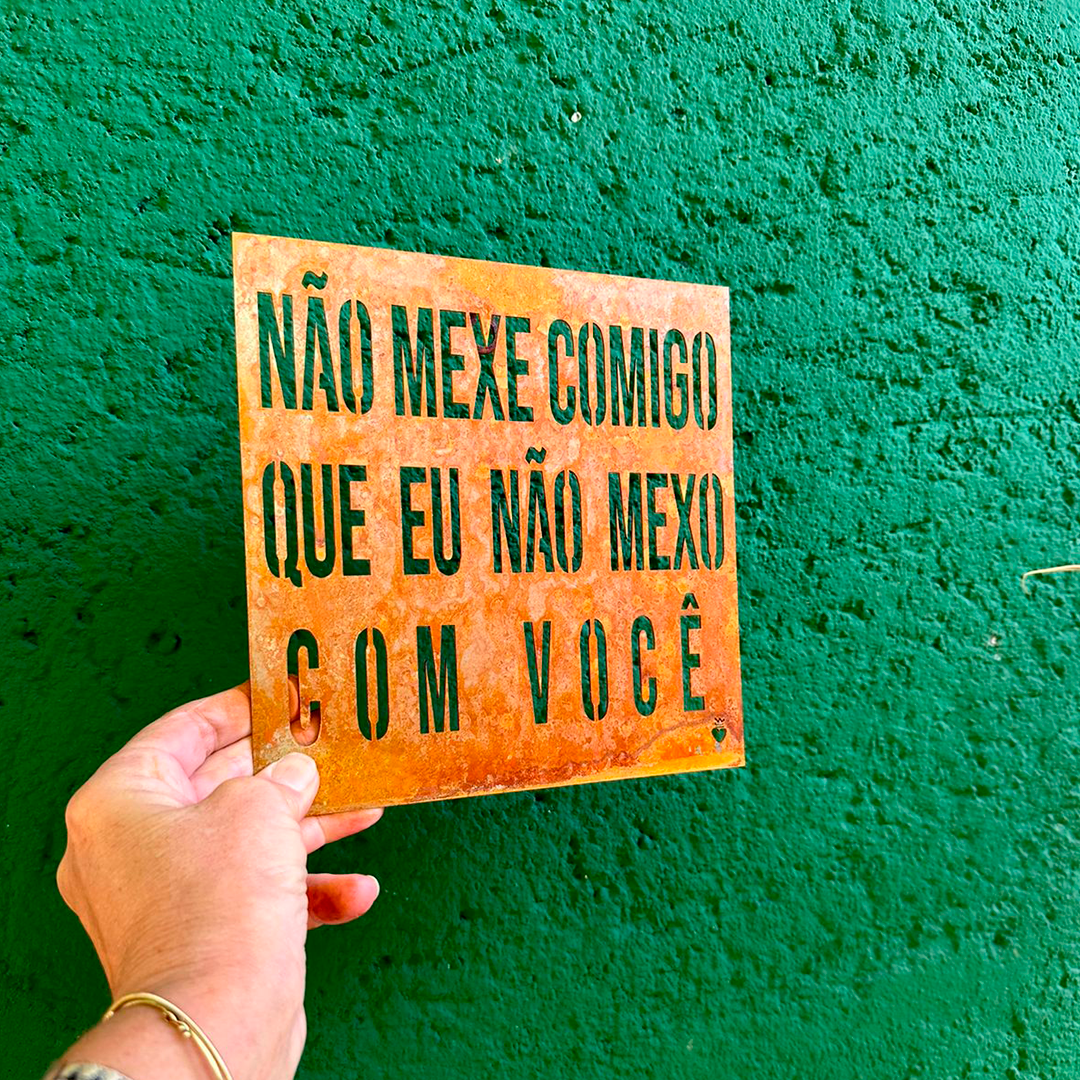 NÃO MEXE COMIGO
QUE EU NÃO MEXO
COM VOCÊ